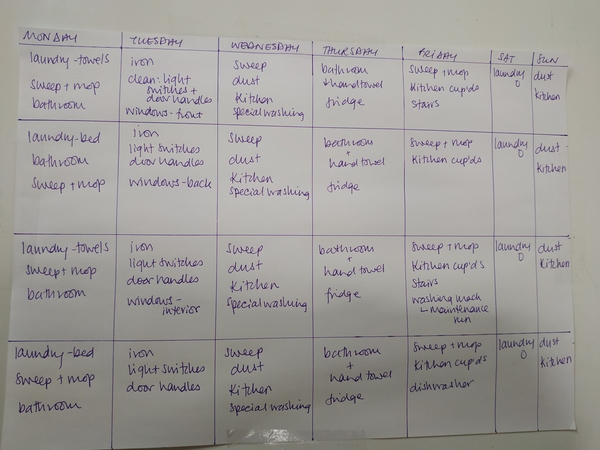 MONDAY TUESDAY WEDNESDAY THURSDAY FRIDAY SAT SUN
laundry-towels
sweep + mop
bathroom
iron
clean: light
switches +
door handles
windows-front
sweep
dust
Kitchen
special washing
bathroom
+ hand towel
fridge
sweep + mop
Kitchen cup'ds
stairs
laundry
dust
Kitchen
laundry-bed
bathroom
sweep + mop
iron
light switches
door handles
windows-back
sweep
dust
Kitchen
special washing
bathroom
+
hand towel
fridge
sweep + mop
Kitchen cup'ds
laundry
dust -
Kitchen
laundry-towels
sweep + mop
bathroom
iron
light switches
door handles
windows-
interior
sweep
dust
Kitchen
special washing
bathroom
+
hand towel
fridge
sweep + mop
Kitchen cup'ds
stairs
washing mach
maintenance
run
laundry
dust
Kitchen
laundry-bed
sweep + mop
bathroom
iron
light switches
door handles
sweep
dust
Kitchen
special washing
bathroom
+
hand towel
fridge
sweep + mop
Kitchen cup'ds
dishwasher
laundry
dust
Kitchen